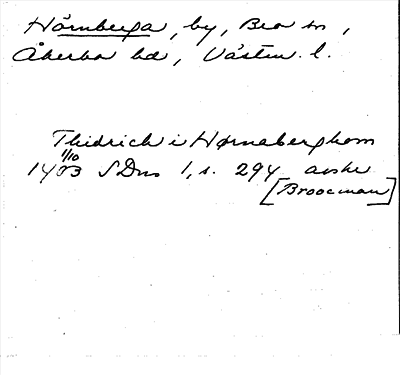 Hårnberga, by, Bro sn,
Åkerbo hd, Västm. l.
Thidrich i Hornaberghom
1/10
1403 SDns 1, s. 294 avskr
[Broocman]